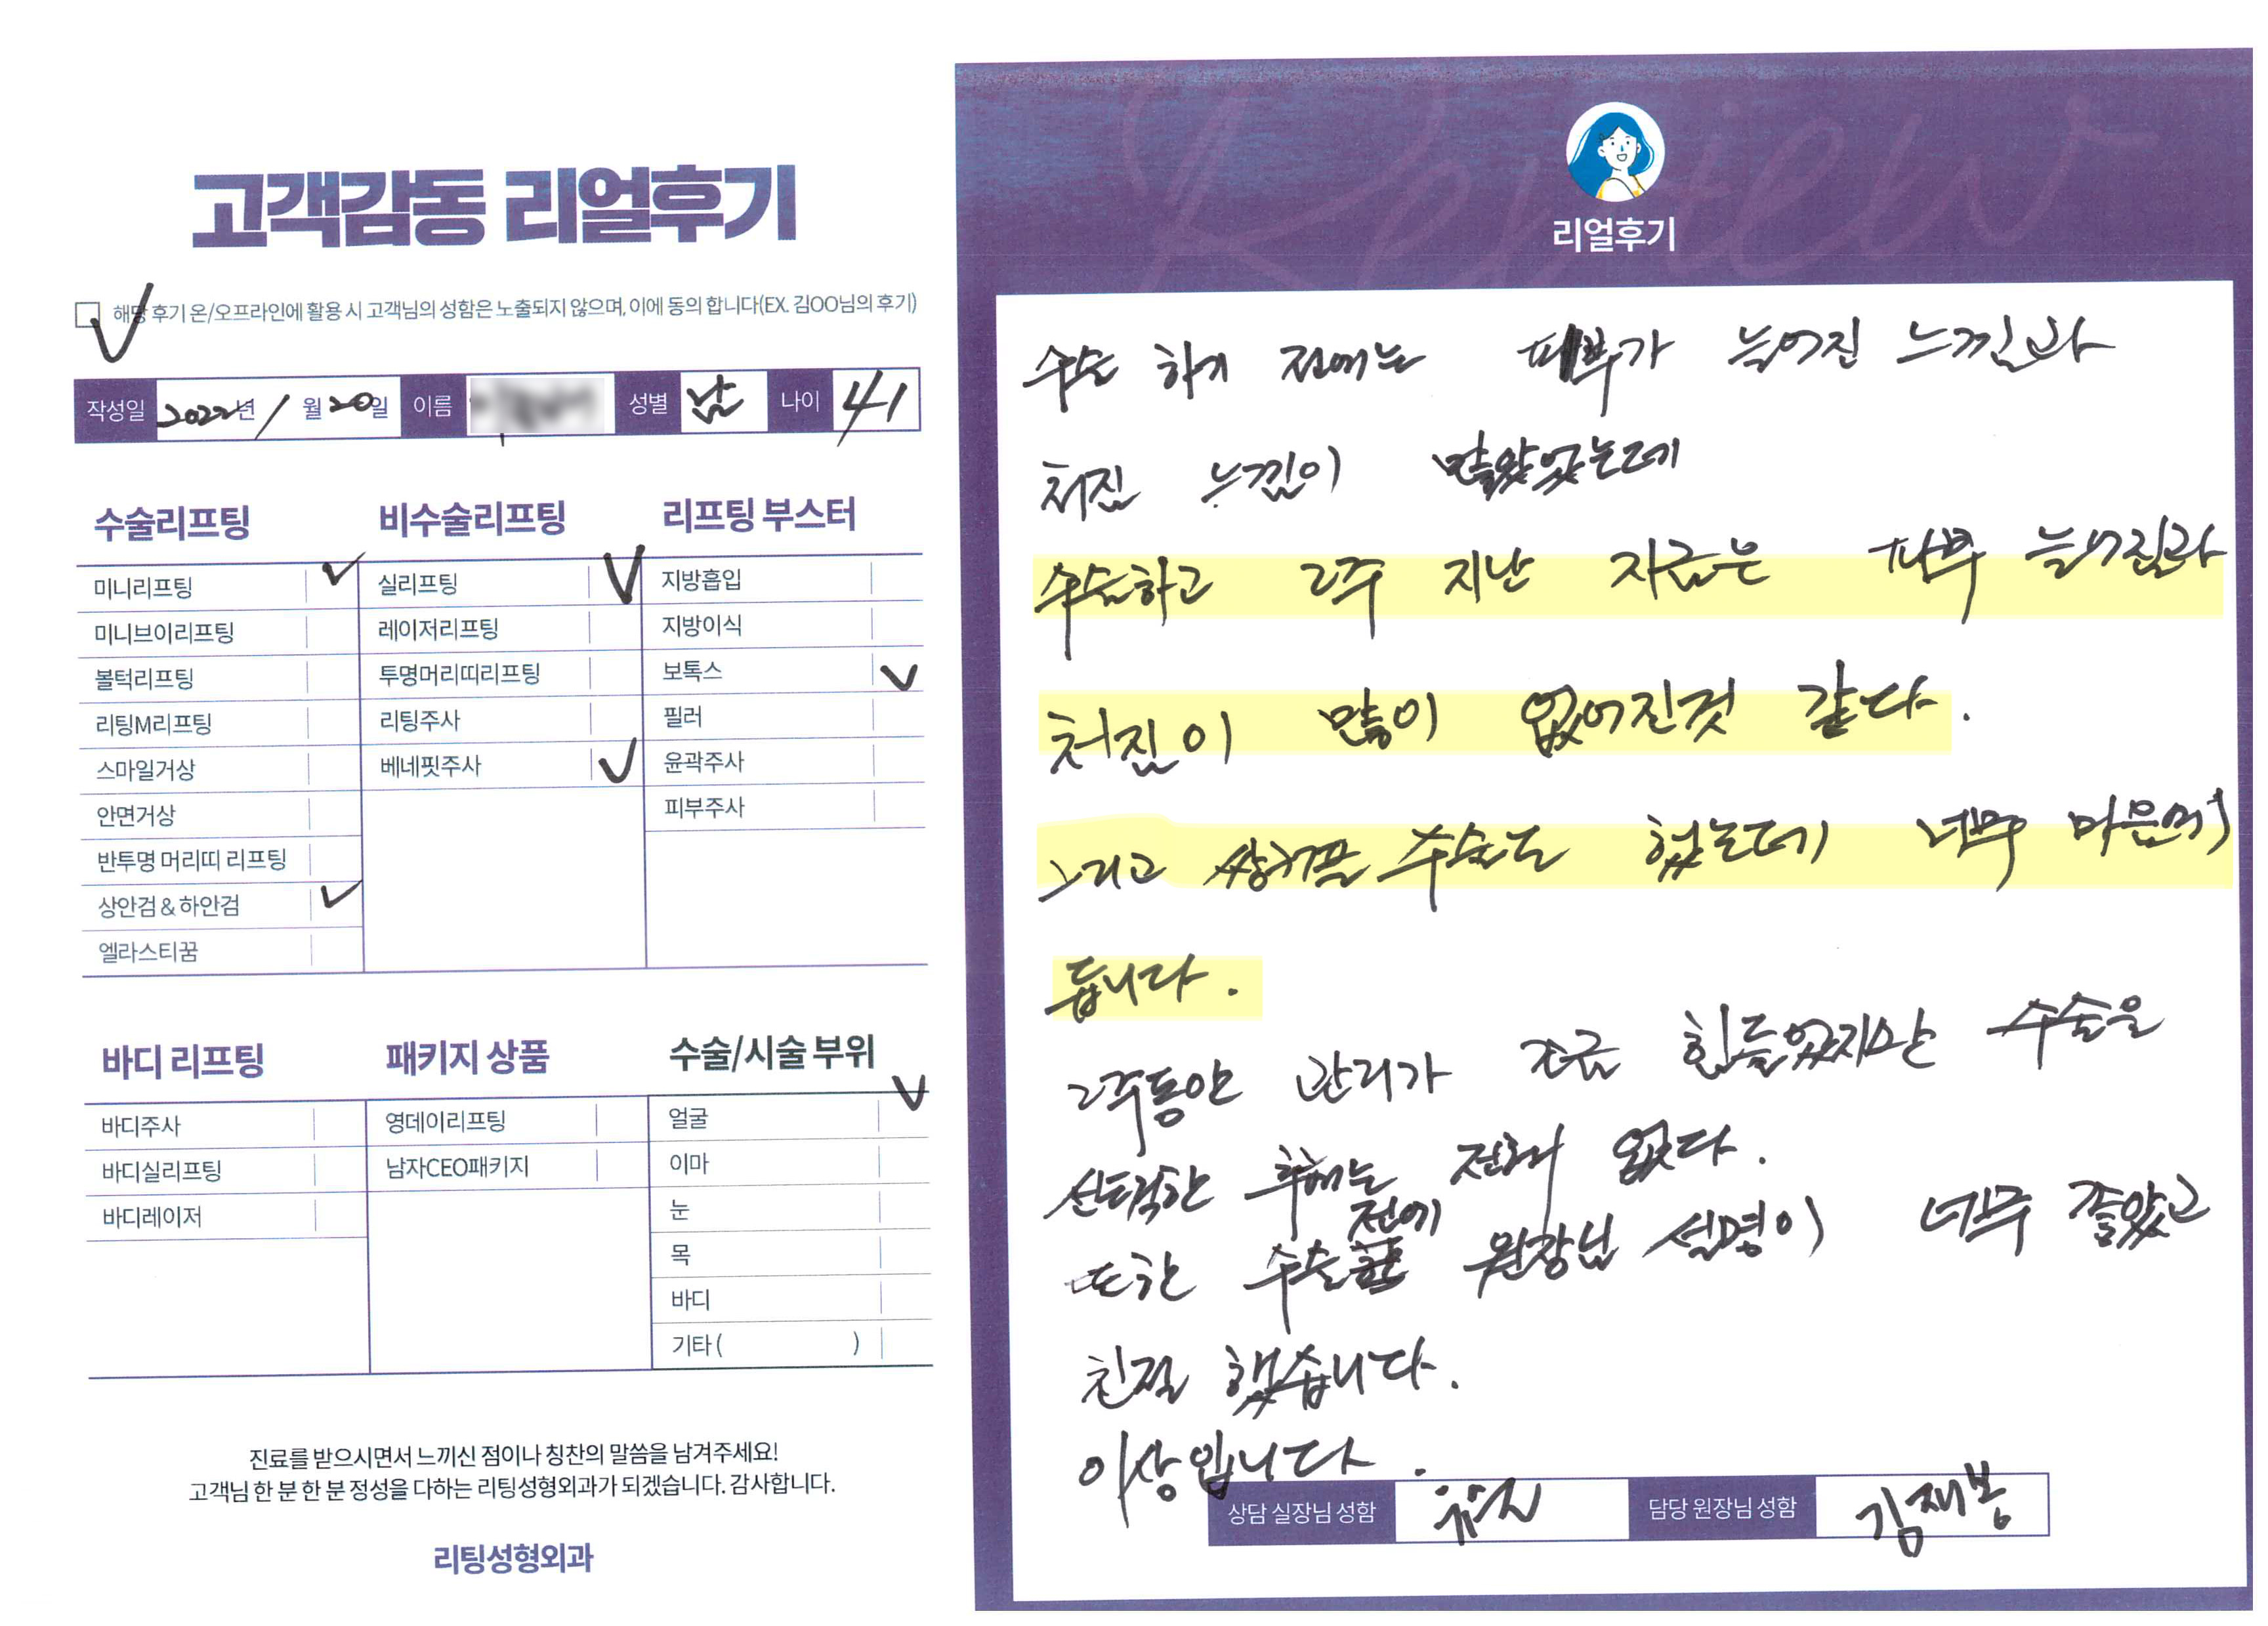 고객감동 리얼후기
해당 후기 온/오프라인에 활용 시 고객님의 성함은 노출되지 않으며, 이에 동의 합니다(EX. 김OO님의 후기)
작성일 2022년 1월 20일 이름 성별 남 나이 41
수술리프팅
미니리프팅
미니브이리프팅
볼턱리프팅
리팅M리프팅
스마일거상
안면거상
반투명 머리띠 리프팅
상안검 & 하안검
엘라스티꿈
비수술리프팅
실리프팅
레이저리프팅
투명머리띠리프팅
리팅주사
베네핏주사
리프팅 부스터
지방흡입
지방이식
보톡스
필러
윤곽주사
피부주사
바디 리프팅
바디주사
바디실리프팅
바디레이저
패키지 상품
영데이리프팅
남자CEO패키지
수술/시술 부위
얼굴
이마
눈
목
바디
기타 ( )
진료를 받으시면서 느끼신 점이나 칭찬의 말씀을 남겨주세요!
고객님 한 분 한 분 정성을 다하는 리팅성형외과가 되겠습니다. 감사합니다.
리팅성형외과
Review
리얼후기
수술 하기 전에는 피부가 늘어진 느낌과
처진 느낌이 많았었는데
수술하고 2주 지난 지금은 피부 늘어짐과
처짐이 많이 없어진것 같다.
그리고 쌍커플 수술도 했는데 너무 마음에
듭니다.
2주동안 관리가 조금 힘들었지만 수술을
선택한 후회는 전혀 없다.
또한 수술 전에 원장님 설명이 너무 좋았고
친절 했습니다.
이상입니다.
상담 실장님 성함 담당 원장님 성함 김재봉